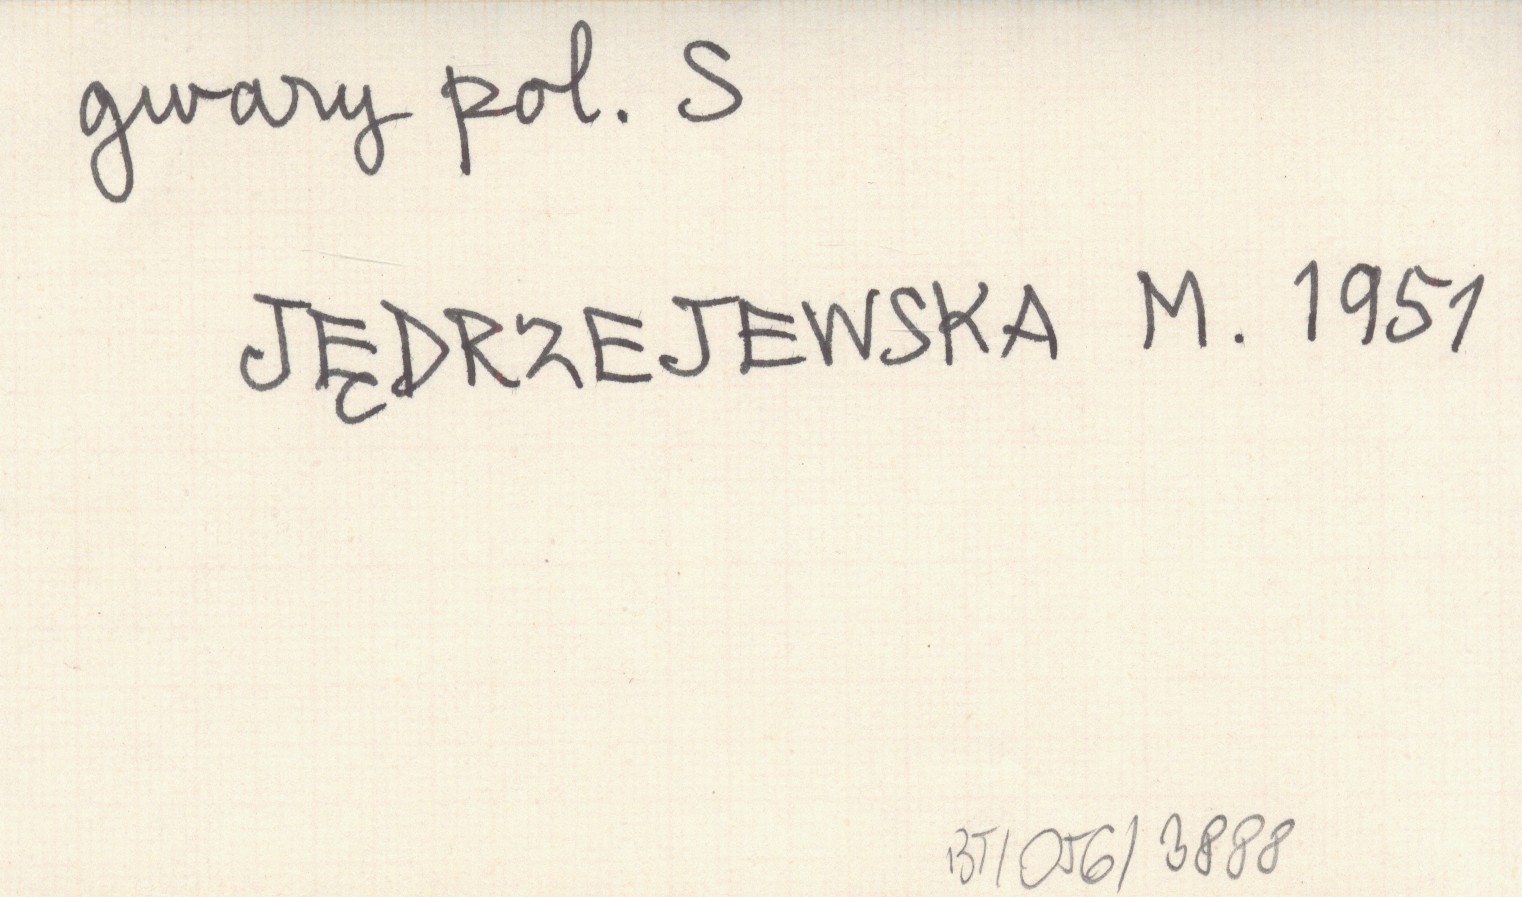 gwary pol. S
JĘDRZEJEWSKA M. 1951
BJ/056/3888